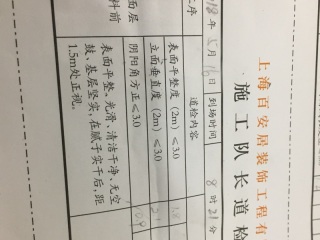 上海百安居装饰工程有
施工队长道检
18年5月16日 到场时间 8时21分
工序
道检内容
面层
料前
表面平整度（2m）≤3.0
立面垂直度（2m）≤3.0
阴阳角方正≤3.0
表面平整、光滑、清洁干净，无空
鼓、基层坚实，在腻子实干后，距
1.5m处正视。